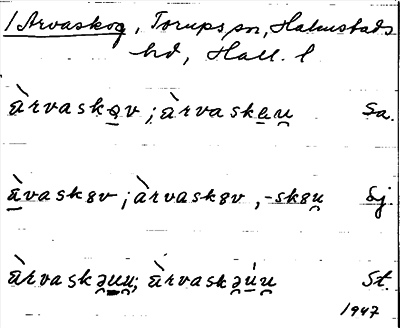 / Årvaskog, Torups sn, Halmstads
hd, Hall. l
àrvaskəv; àrvaskau̯ Sa.
àvaskɞv; àrvaskɞv, -skɞu̯ Sj.
àrvaskə̯uu̯; àrvaskə̯úu̯ St.
1947